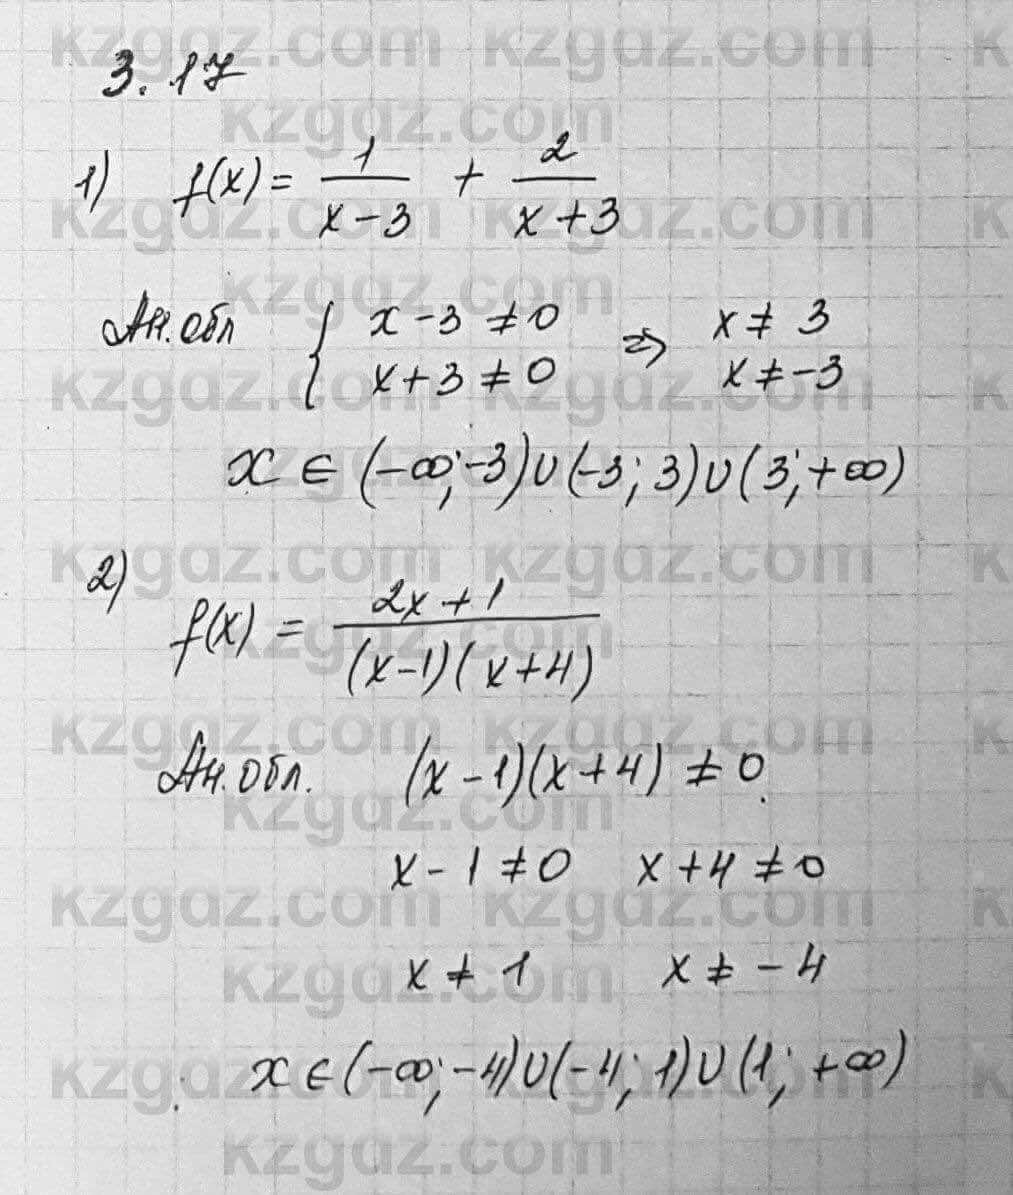 3.17
1) f(x) = 1/(x-3) + 2/(x+3)
Ан.обл { x-3 ≠ 0 ⇒ x ≠ 3
x+3 ≠ 0 x ≠ -3
x ∈ (-∞; -3) ∪ (-3; 3) ∪ (3; +∞)
2) f(x) = (2x+1)/((x-1)(x+4))
Ан.обл. (x-1)(x+4) ≠ 0.
x-1 ≠ 0 x+4 ≠ 0
x ≠ 1 x ≠ -4
x ∈ (-∞; -4) ∪ (-4; 1) ∪ (1; +∞)
kzgaz.com